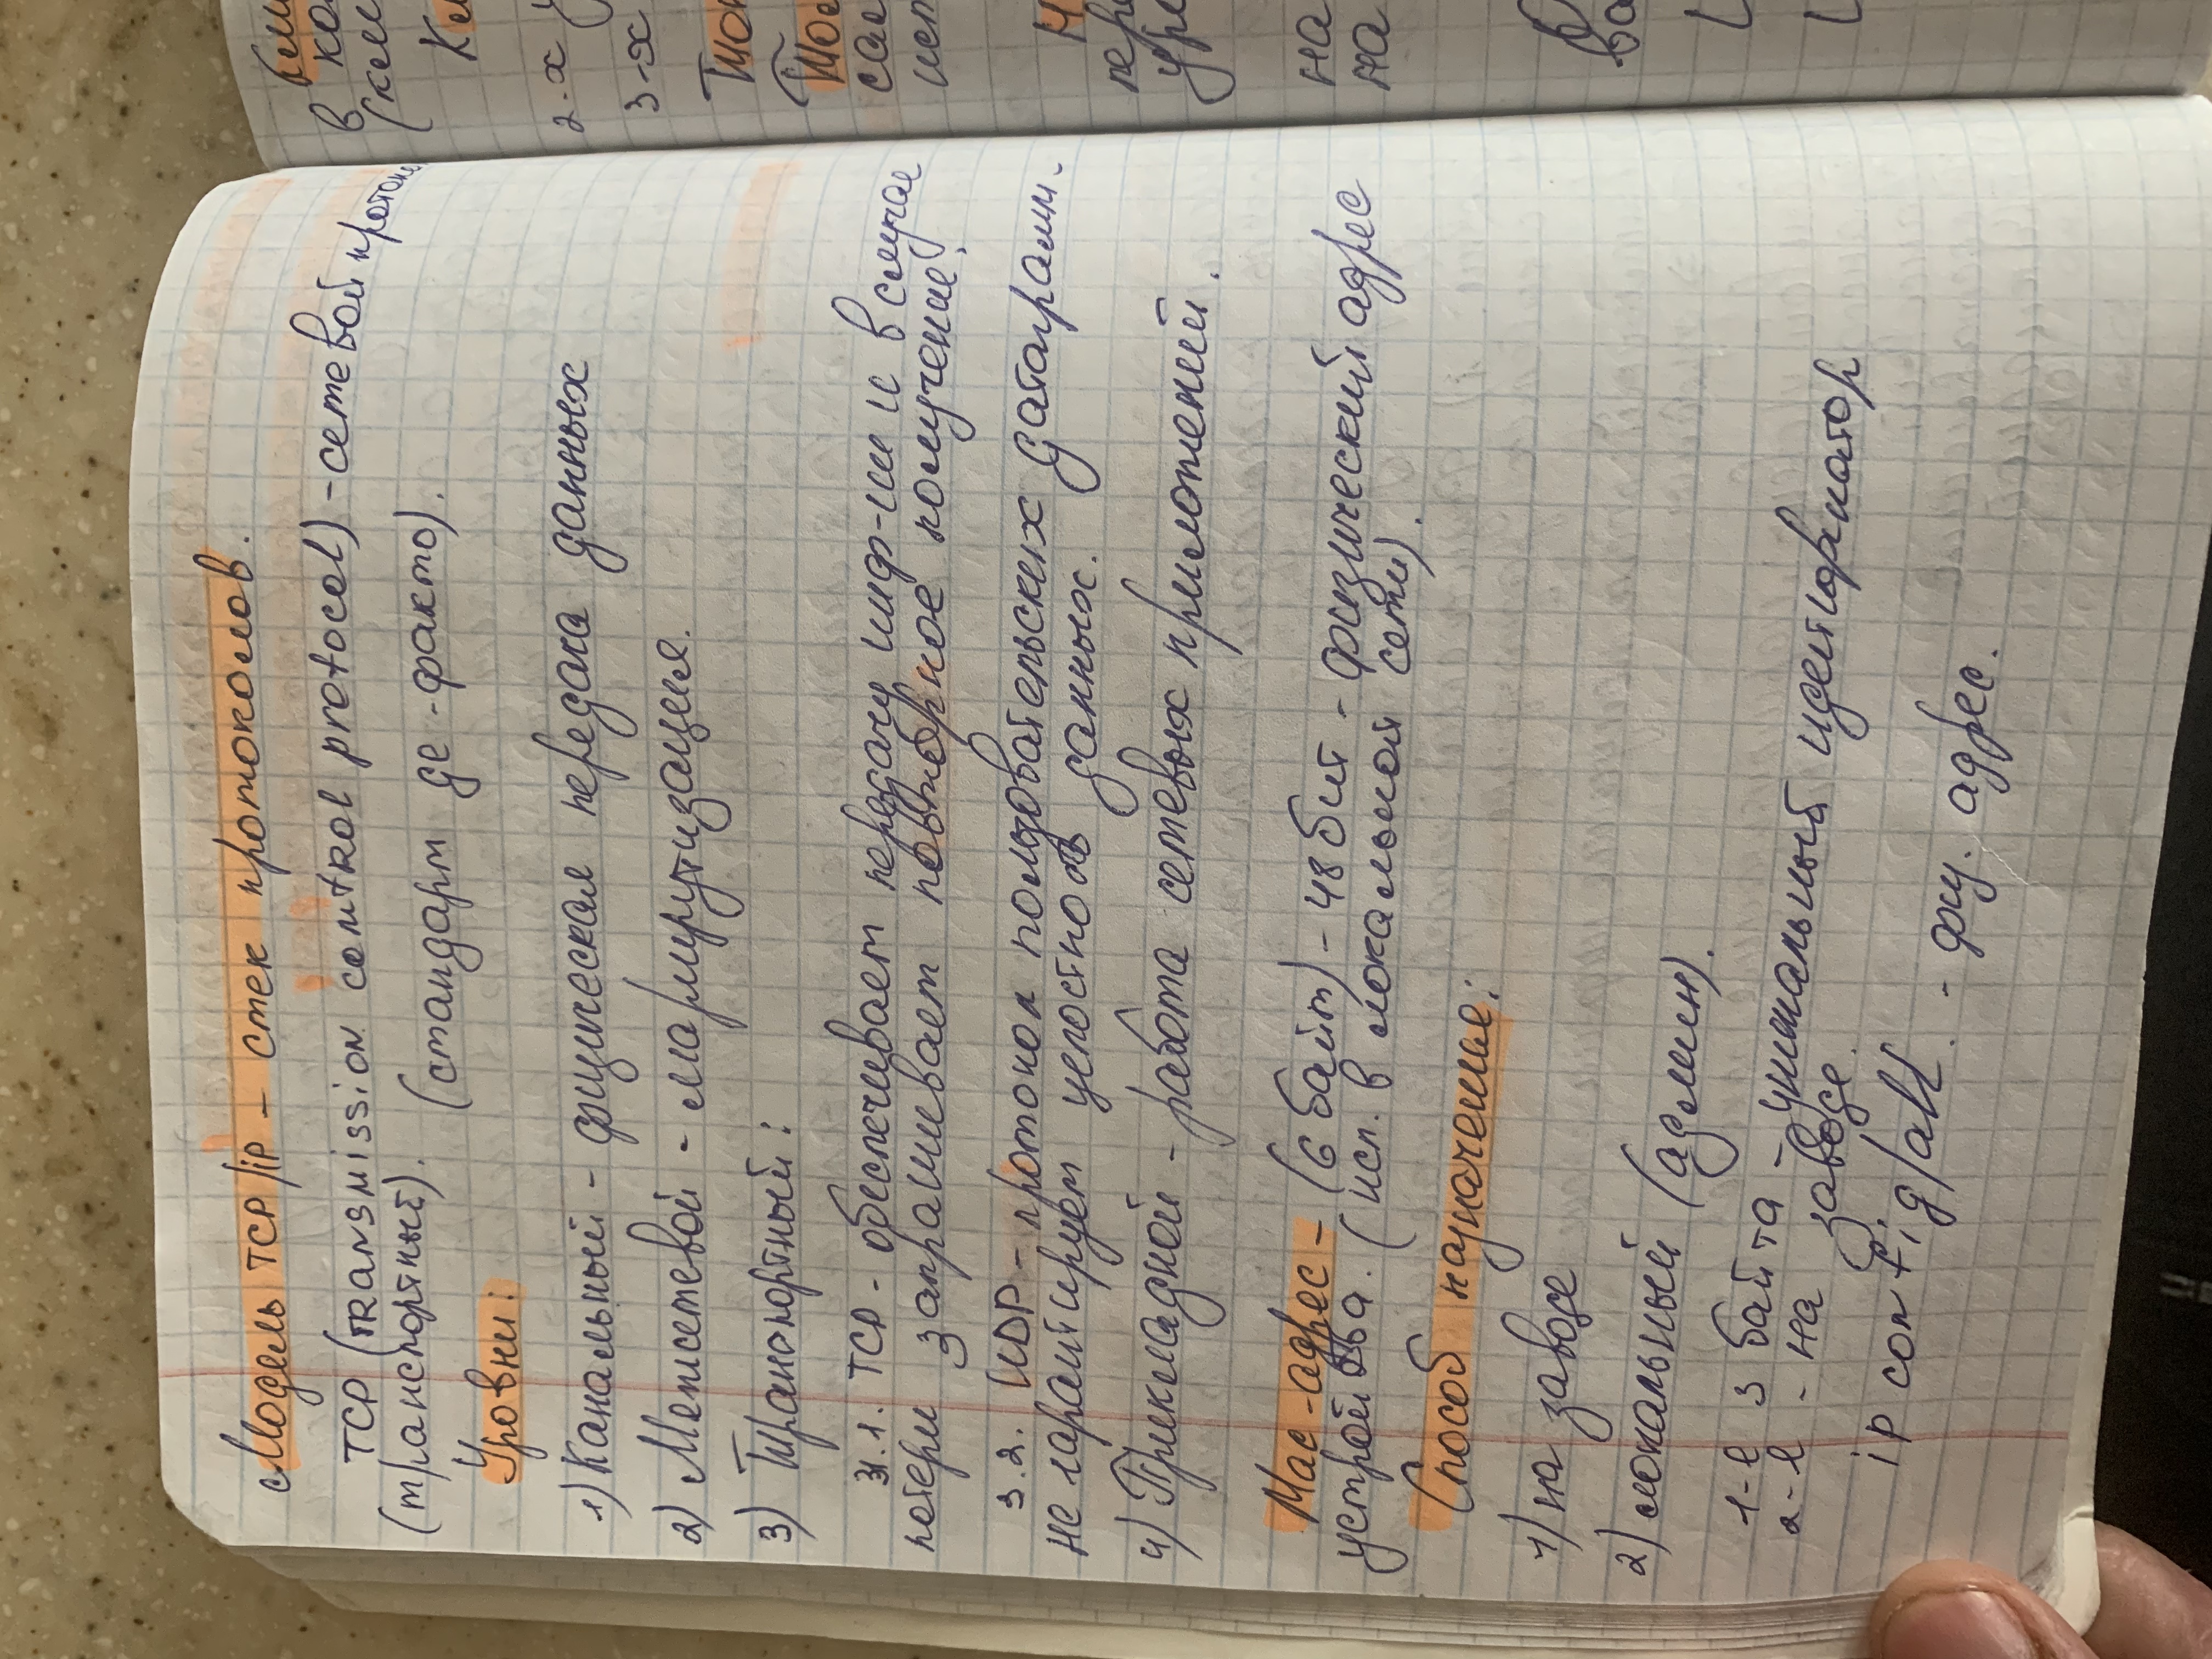 Модель TCP/iP – стек протоколов.
TCP (TRANSMISSION control protocol) – сетевой протокол
(транспортный). (стандарт де-факто).
Уровни:
1) Канальный – физическая передача данных
2) Межсетевой – маршрутизация.
3) Транспортный:
3.1. TCP – обеспечивает передачу инф-ии и в случае
потери запрашивает повторное получение.
3.2. UDP – протокол пользовательских датаграмм.
не гарантирует целостность данных.
4) Прикладной – работа сетевых приложений.
Мас-адрес – (6 байт) – 48 бит – физический адрес
устройства. (исп. в локальной сети).
Способ назначения:
1) на заводе
2) локальный (админ).
1-е 3 байта – уникальный идентификатор
2-е – на заводе.
ip config/all. – физ. адрес.
в ко
2-х у
3-х
сам
ист
пере
уро
на
на